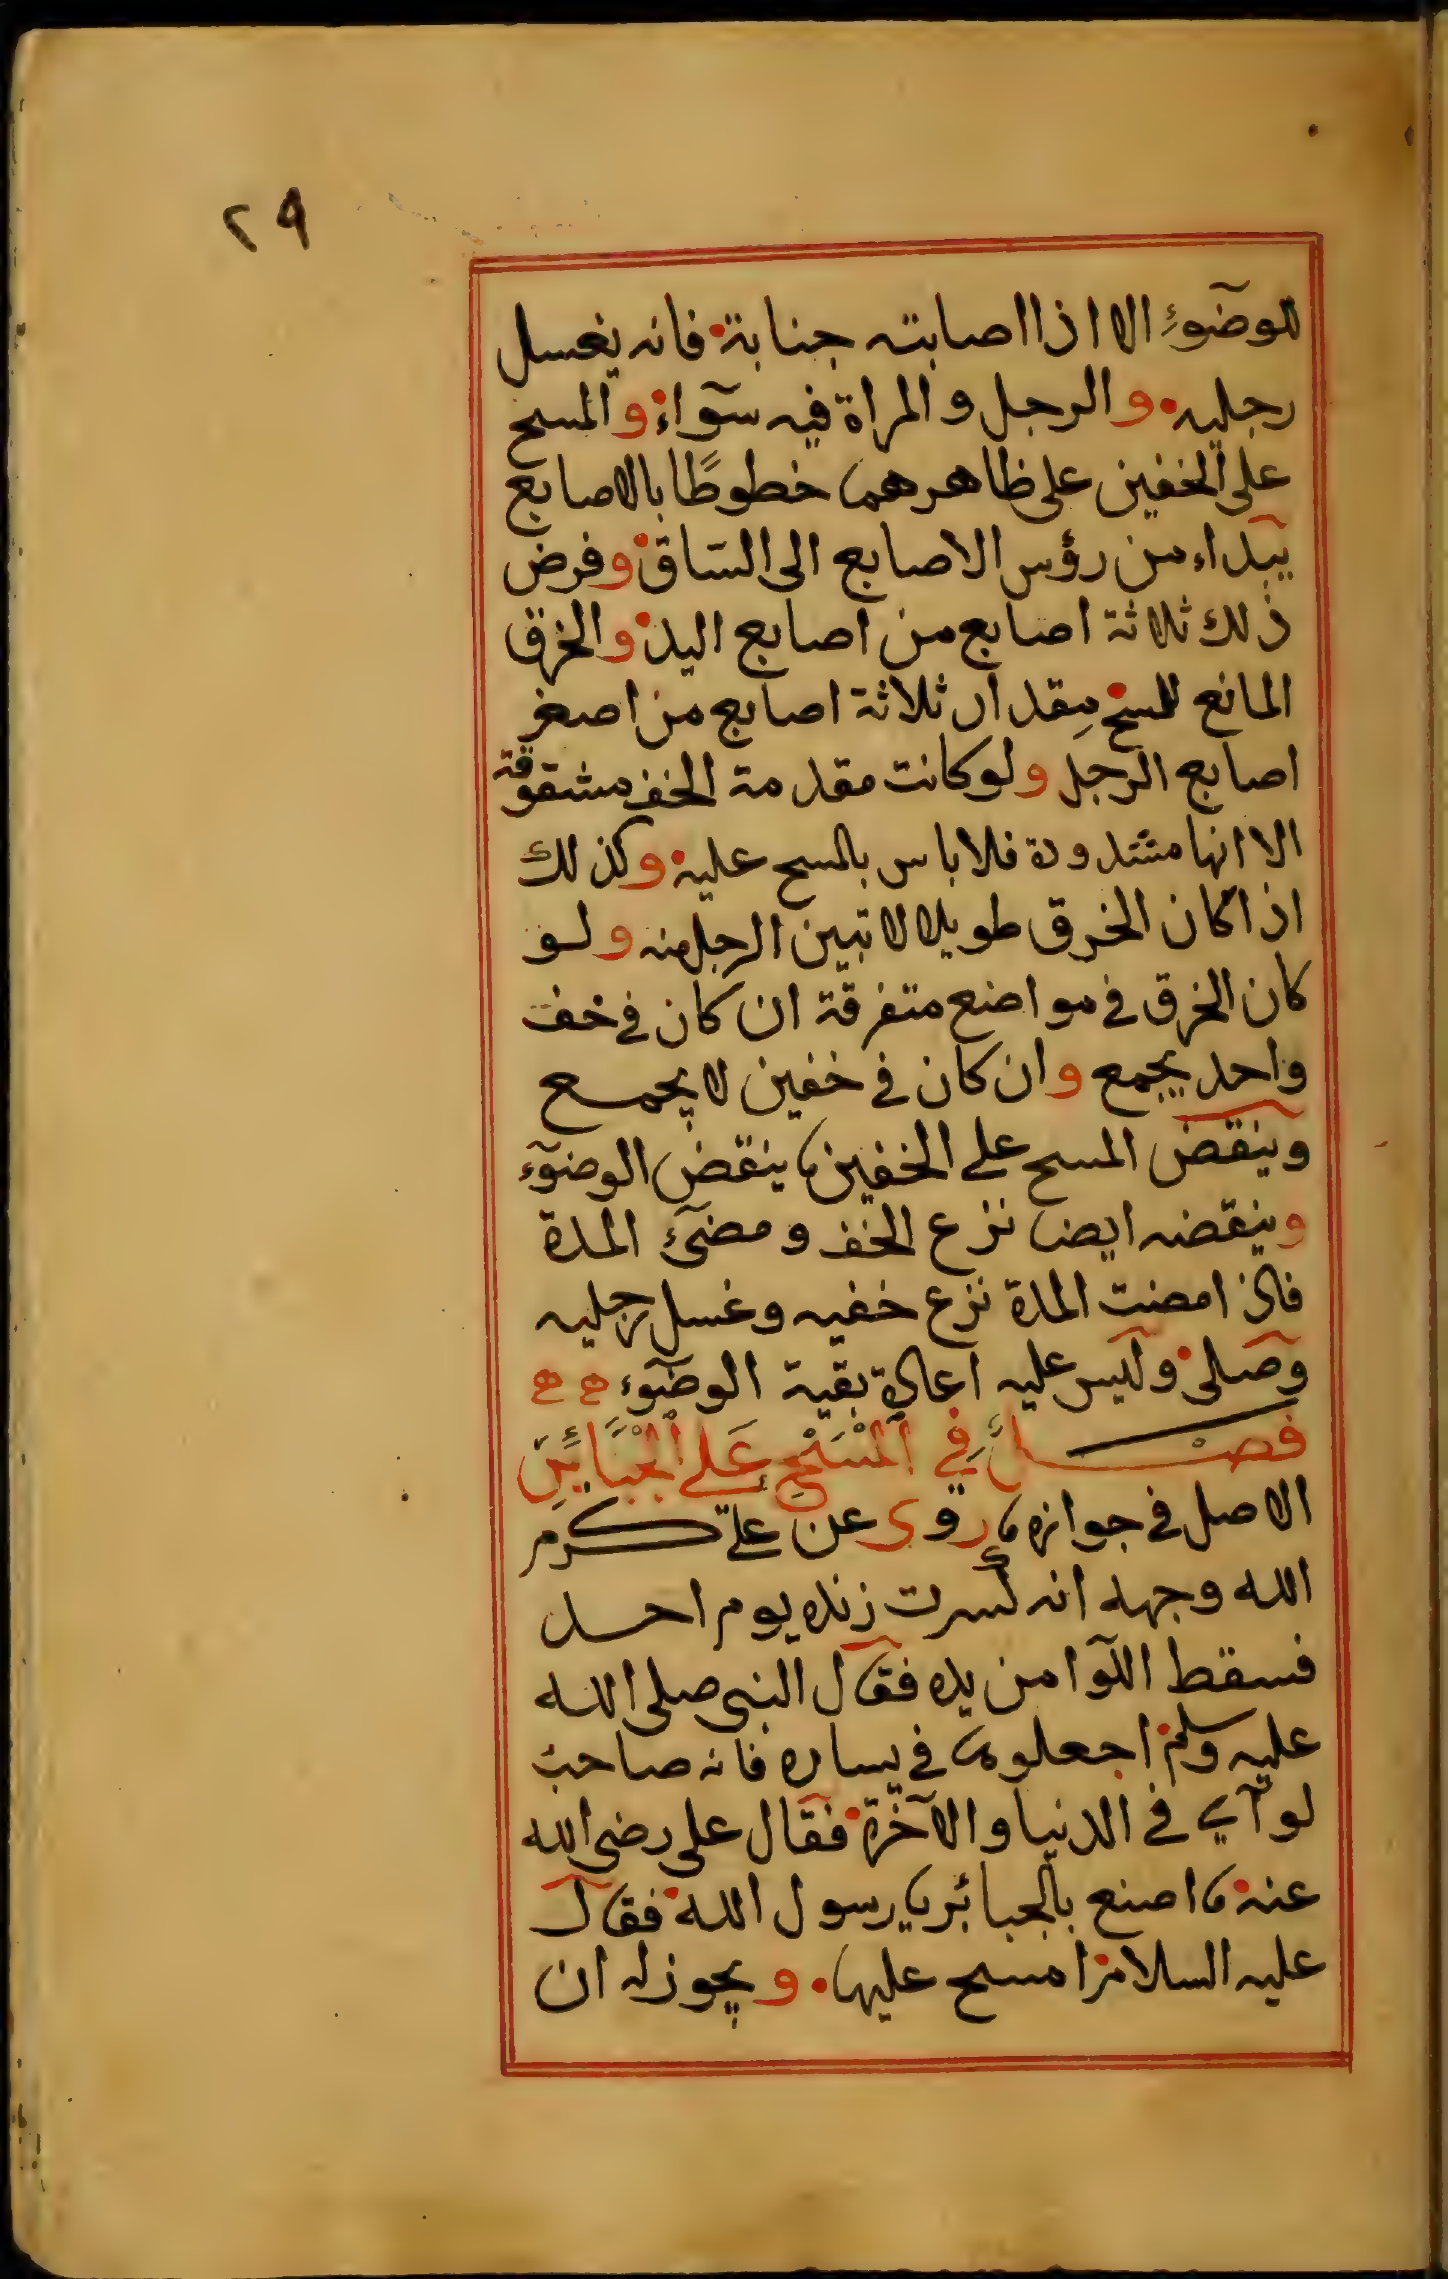 ٢٩
للوضوء الا اذا اصابته جنابة فانه يغسل
رجليه و الرجل و المراة فيه سوآء و المسح
على الخفين على ظاهرهما خطوطًا بالاصابع
يبداء من رؤس الاصابع الى الساق و فرض
ذلك ثلاثة اصابع من اصابع اليد و الخرق
المانع للمسح مقدار ثلاثة اصابع من اصغر
اصابع الرجل و لو كانت مقدمة الخف مشقوقة
الا انها مشدودة فلا باس بالمسح عليه و كذلك
اذا كان الخرق طويلا لا تبين الرجل منه و لو
كان الخرق فى مواضع متفرقة ان كان فى خف
واحد يجمع و ان كان فى خفين لا يجمع
وينقض المسح على الخفين ما ينقض الوضوء
و ينقضه ايضا نزع الخف و مضىء المدة
فاذا مضت المدة نزع خفيه و غسل رجليه
وصلى وليس عليه اعادة بقية الوضوء ه ه
فصل فِي المَسْحِ عَلى الْجَبَائِرِ
الاصل فى جوازه ما روى عن علىّ كرم
الله وجهه انه كُسرت زنده يوم احد
فسقط اللوآ من يده فقال النبى صلى الله
عليه وسلم اجعلوه فى يساره فانه صاحب
لوآى فى الدنيا والآخرة فقال على رضى الله
عنه ما اصنع بالجبائر يا رسول الله فقال
عليه السلام امسح عليها و يجوز له ان